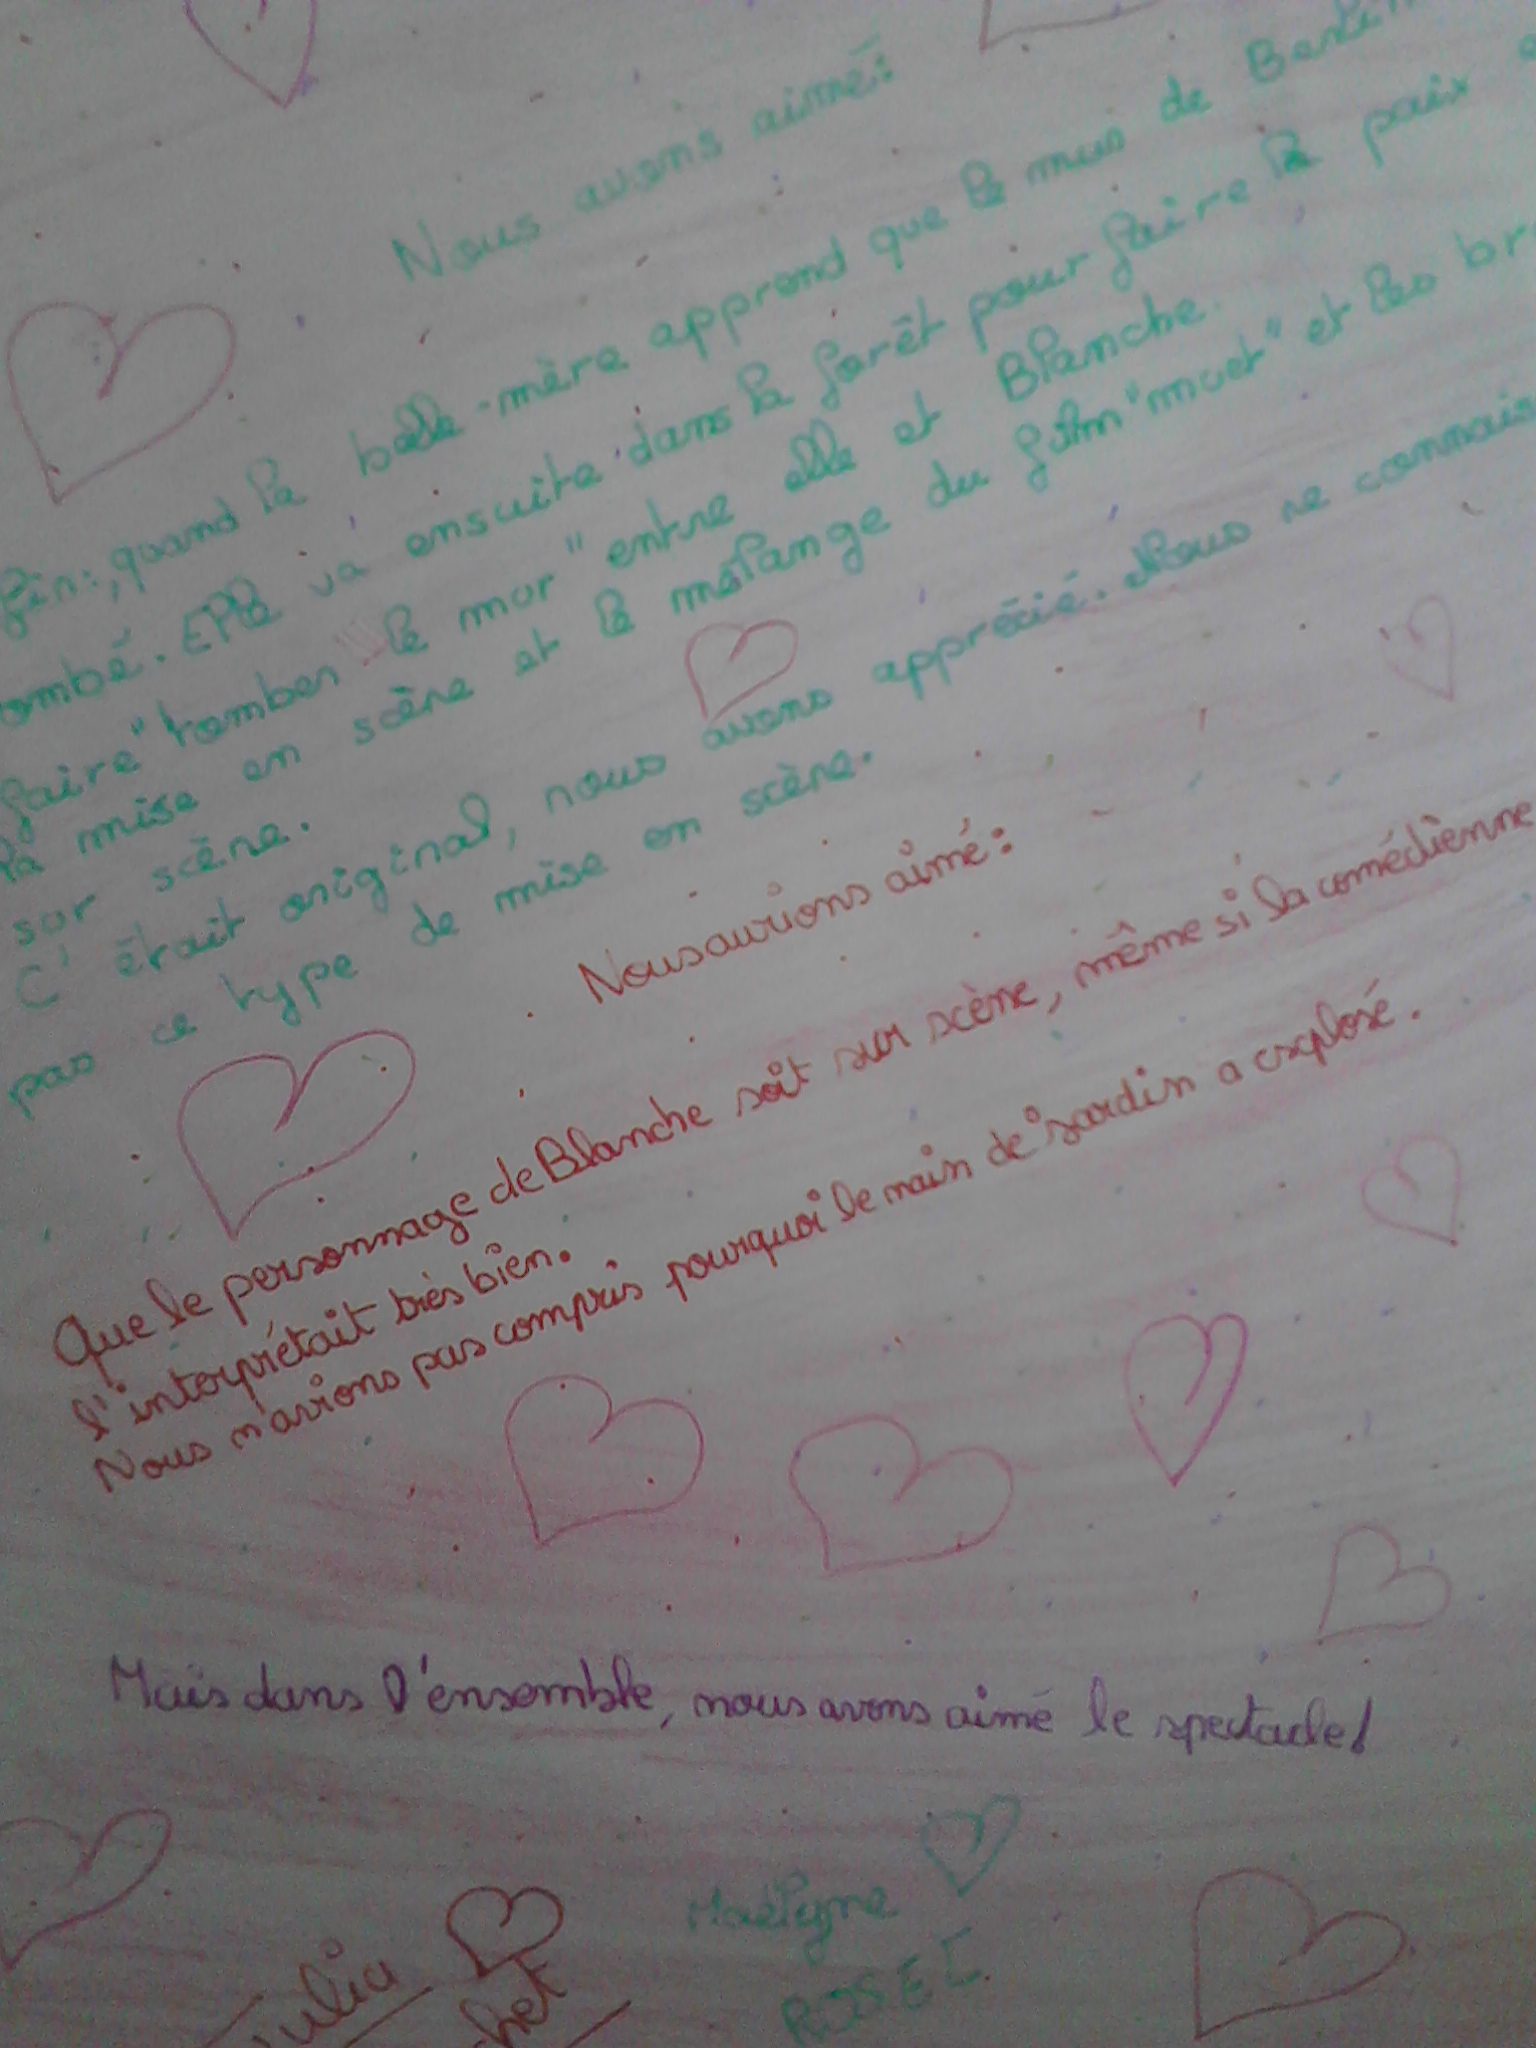 Nous avons aimé:
fin:, quand la belle-mère apprend que le mur de Berlin
ombé. Elle va ensuite dans la forêt pour faire la paix
faire "tomber le mur" entre elle et Blanche.
la mise en scène et le mélange du film "muet" et les br
sur scène.
C'était original, nous avons apprécié. Nous ne connais
pas ce type de mise en scène.
Nous aurions aimé:
Que le personnage de Blanche soit sur scène, même si la comédienne
l'interprétait très bien.
Nous n'avions pas compris pourquoi le nain de jardin a explosé.
Mais dans l'ensemble, nous avons aimé le spectacle!
Julia
het
Maëlyne
ROSEC